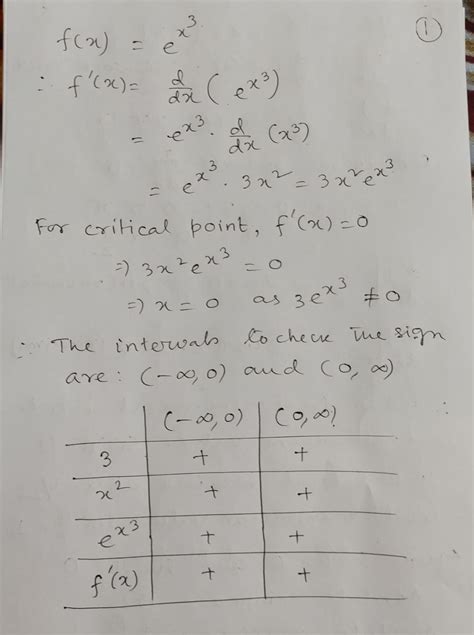 ①
f(x) = e^{x^3}
∴ f'(x) = d/dx (e^{x^3})
= e^{x^3} · d/dx (x^3)
= e^{x^3} · 3x^2 = 3x^2 e^{x^3}
For critical point, f'(x) = 0
⇒ 3x^2 e^{x^3} = 0
⇒ x = 0 as 3e^{x^3} ≠ 0
∴ The intervals to check the sign
are : (-∞, 0) and (0, ∞)
(-∞, 0) (0, ∞)
3 + +
x^2 + +
e^{x^3} + +
f'(x) + +